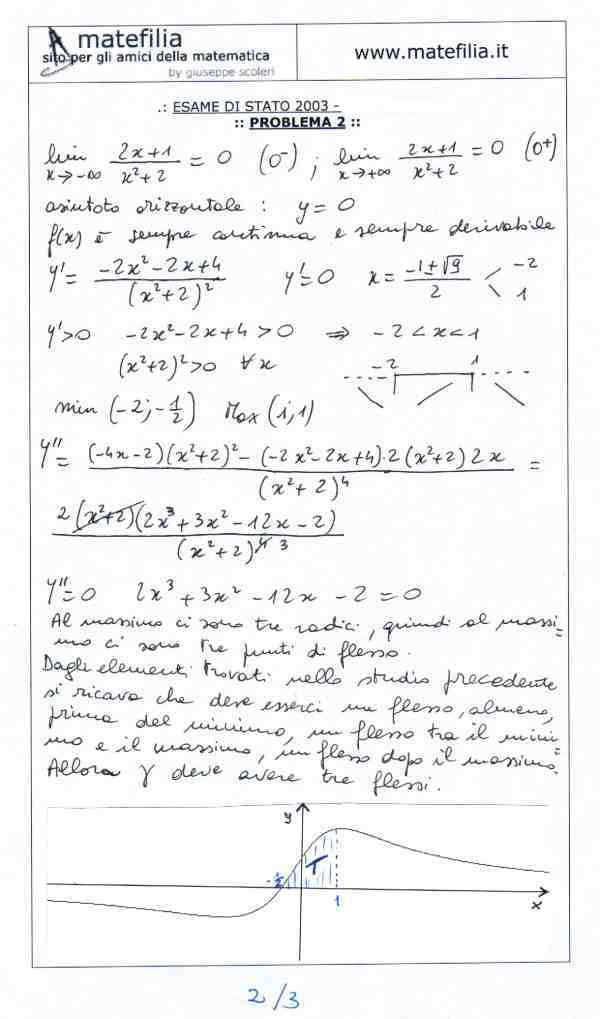 matefilia
sito per gli amici della matematica
by giuseppe scoleri
www.matefilia.it
.: ESAME DI STATO 2003 -
:: PROBLEMA 2 ::
lim x→-∞ (2x+1)/(x²+2) = 0 (0⁻) ; lim x→+∞ (2x+1)/(x²+2) = 0 (0⁺)
asintoto orizzontale : y = 0
f(x) è sempre continua e sempre derivabile
y' = (-2x²-2x+4)/(x²+2)² y'=0 x = (-1±√9)/2 -2 1
y'>0 -2x²-2x+4>0 ⇒ -2<x<1
(x²+2)²>0 ∀x -2 1
min (-2;-1/2) Max (1;1)
y'' = ((-4x-2)(x²+2)²-(-2x²-2x+4)·2(x²+2)2x)/(x²+2)⁴ =
2(x²+2)(2x³+3x²-12x-2)/(x²+2)⁴ 3
y''=0 2x³+3x²-12x-2=0
Al massimo ci sono tre radici, quindi al massi=
mo ci sono tre punti di flesso.
Dagli elementi trovati nello studio precedente
si ricava che deve esserci un flesso, almeno,
prima del minimo, un flesso tra il mini=
mo e il massimo, un flesso dopo il massimo.
Allora γ deve avere tre flessi.
y
T
-1/2
1
x
2/3